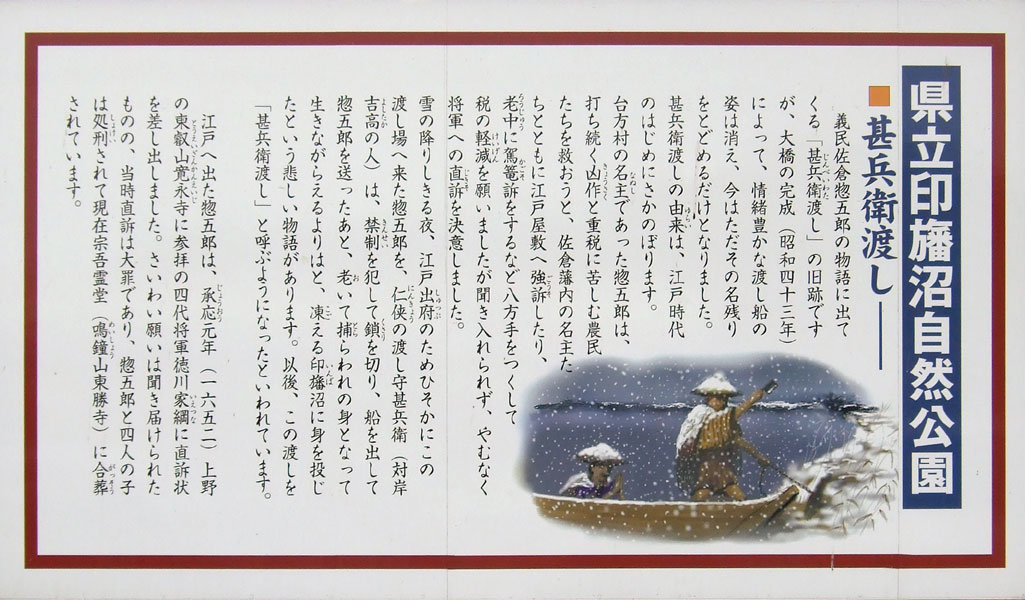 県立印旛沼自然公園
■甚兵衛渡し――
義民佐倉惣五郎の物語に出て
くる「甚兵衛渡し」の旧跡です
が、大橋の完成（昭和四十三年）
によって、情緒豊かな渡し船の
姿は消え、今はただその名残り
をとどめるだけとなりました。
甚兵衛渡しの由来は、江戸時代
のはじめにさかのぼります。
台方村の名主であった惣五郎は、
打ち続く凶作と重税に苦しむ農民
たちを救おうと、佐倉藩内の名主た
ちとともに江戸屋敷へ強訴したり、
老中に駕篭訴をするなど八方手をつくして
税の軽減を願いましたが聞き入れられず、やむなく
将軍への直訴を決意しました。
雪の降りしきる夜、江戸出府のためひそかにこの
渡し場へ来た惣五郎を、仁侠の渡し守甚兵衛（対岸
吉高の人）は、禁制を犯して鎖を切り、船を出して
惣五郎を送ったあと、老いて捕らわれの身となって
生きながらえるよりはと、凍える印旛沼に身を投じ
たという悲しい物語があります。以後、この渡しを
「甚兵衛渡し」と呼ぶようになったといわれています。
江戸へ出た惣五郎は、承応元年（一六五二）上野
の東叡山寛永寺に参拝の四代将軍徳川家綱に直訴状
を差し出しました。さいわい願いは聞き届けられた
ものの、当時直訴は大罪であり、惣五郎と四人の子
は処刑されて現在宗吾霊堂（鳴鐘山東勝寺）に合葬
されています。